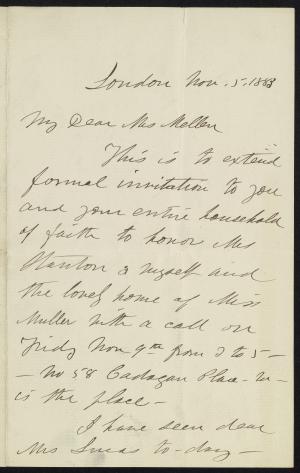 London Nov. 5. 1883
My Dear Mrs Mellen
This is to extend
formal invitation to you
and your entire household
of faith to honor Mrs
Stanton & myself and
the lovely home of Miss
Muller with a call on
Friday Nov 9th from 3 to 5 —
— No 58 Cadogan Place —
is the place —
I have seen dear
Mrs Lucas to-day —